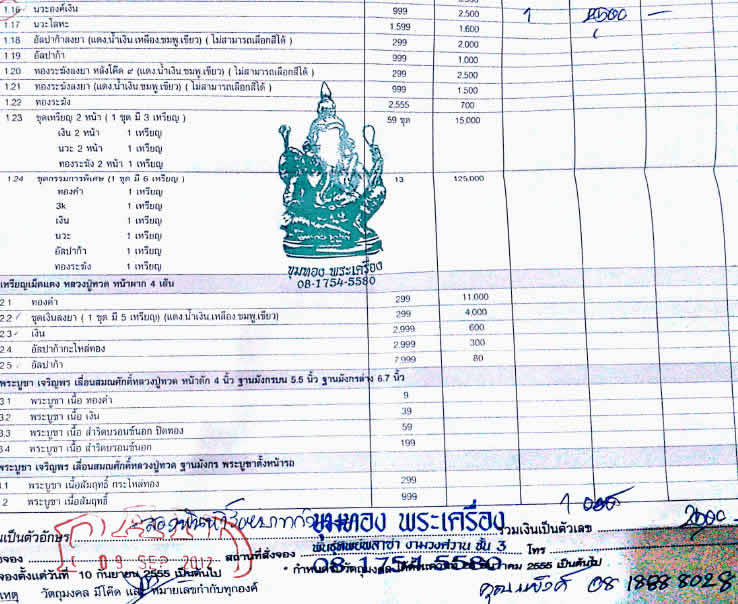 1.16 นวะองค์เงิน 999 2,500 1 2500 –
1.17 นวะโลหะ 1,599 1,600
1.18 อัลปาก้าลงยา (แดง,น้ำเงิน,เหลือง,ชมพู,เขียว) ( ไม่สามารถเลือกสีได้ ) 299 2,000
1.19 อัลปาก้า 999 1,000
1.20 ทองระฆังลงยา หลังโค๊ด ๙ (แดง,น้ำเงิน,ชมพู,เขียว) ( ไม่สามารถเลือกสีได้ ) 299 2,500
1.21 ทองระฆังลงยา (แดง,น้ำเงิน,ชมพู,เขียว) ( ไม่สามารถเลือกสีได้ ) 999 1,500
1.22 ทองระฆัง 2,555 700
1.23 ชุดเหรียญ 2 หน้า ( 1 ชุด มี 3 เหรียญ ) 59 ชุด 15,000
เงิน 2 หน้า 1 เหรียญ
นวะ 2 หน้า 1 เหรียญ
ทองระฆัง 2 หน้า 1 เหรียญ
1.24 ชุดกรรมการพิเศษ (1 ชุด มี 6 เหรียญ ) 13 125,000
ทองคำ 1 เหรียญ
3k 1 เหรียญ
เงิน 1 เหรียญ
นวะ 1 เหรียญ
อัลปาก้า 1 เหรียญ
ทองระฆัง 1 เหรียญ
ขุมทอง พระเครื่อง
08-1754-5580
เหรียญเม็ดแตง หลวงปู่ทวด หน้าผาก 4 เส้น
2.1 ทองคำ 299 11,000
2.2 ชุดเงินลงยา ( 1 ชุด มี 5 เหรียญ) (แดง,น้ำเงิน,เหลือง,ชมพู,เขียว) 299 4,000
2.3 เงิน 2,999 600
2.4 อัลปาก้ากะไหล่ทอง 2,999 300
2.5 อัลปาก้า 7,999 80
พระบูชา เจริญพร เลื่อนสมณศักดิ์หลวงปู่ทวด หน้าตัก 4 นิ้ว ฐานมังกรบน 5.5 นิ้ว ฐานมังกรล่าง 6.7 นิ้ว
3.1 พระบูชา เนื้อ ทองคำ 9
3.2 พระบูชา เนื้อ เงิน 39
3.3 พระบูชา เนื้อ สำริดบรอนซ์นอก ปิดทอง 59
3.4 พระบูชา เนื้อ สำริดบรอนซ์นอก 199
พระบูชา เจริญพร เลื่อนสมณศักดิ์หลวงปู่ทวด ฐานมังกร พระบูชาตั้งหน้ารถ
.1 พระบูชา เนื้อสัมฤทธิ์ กระไหล่ทอง 299
2 พระบูชา เนื้อสัมฤทธิ์ 999
นเป็นตัวอักษร ขุมทอง พระเครื่อง รวมเงินเป็นตัวเลข
09 SEP 2012 สถานที่สั่งจอง พันธุ์ทิพย์พลาซ่า งามวงศ์วาน ชั้น 3 โทร
จองตั้งแต่วันที่ 10 กันยายน 2555 เป็นต้นไป 08-1754-5580 2555 เป็นต้นไป
เหตุ วัตถุมงคล มีโค๊ด และหมายเลขกำกับทุกองค์ 08 1868 8028